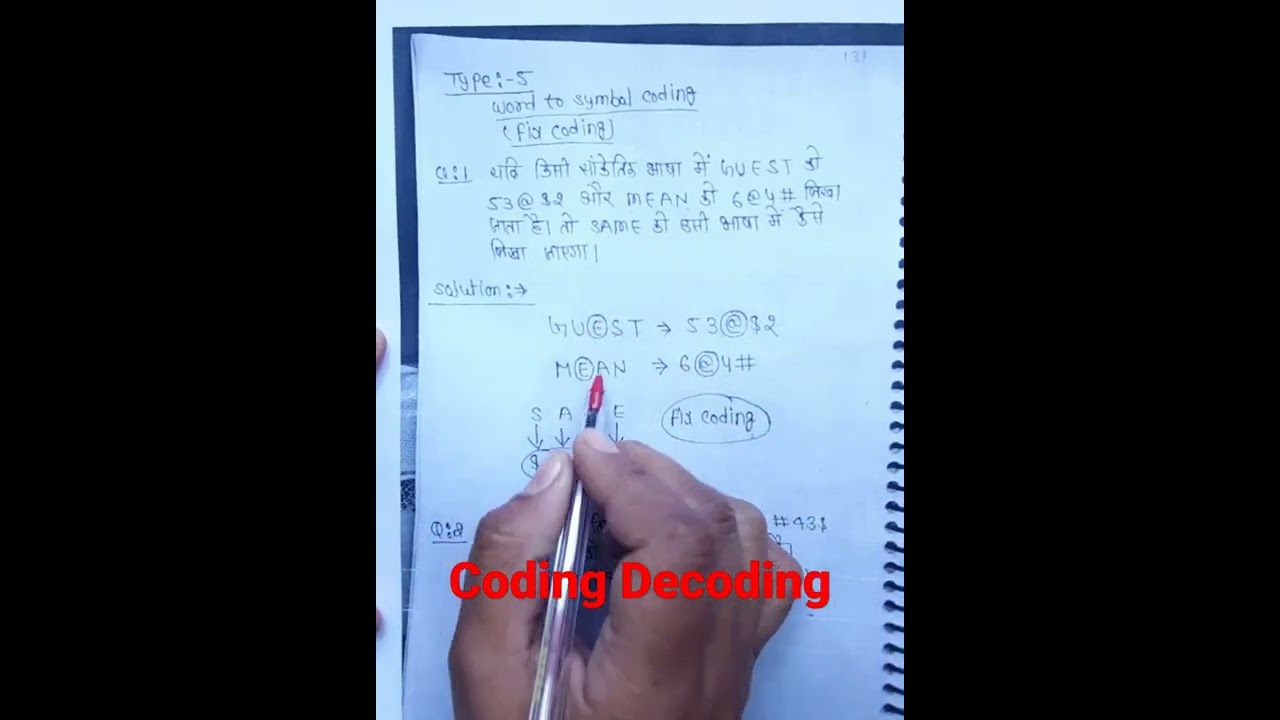 131
Type:-5
Word to symbol coding
(Fix coding)
Q:1 यदि किसी सांकेतिक भाषा में GUEST को
53@$2 और MEAN को 6@4# लिखा
जाता है। तो SAME को उसी भाषा में कैसे
लिखा जाएगा।
Solution:→
GUEST → 53@$2
MEAN → 6@4#
S A E
Fix coding
↓ ↓ ↓
$
Q:2 #43$
Coding Decoding